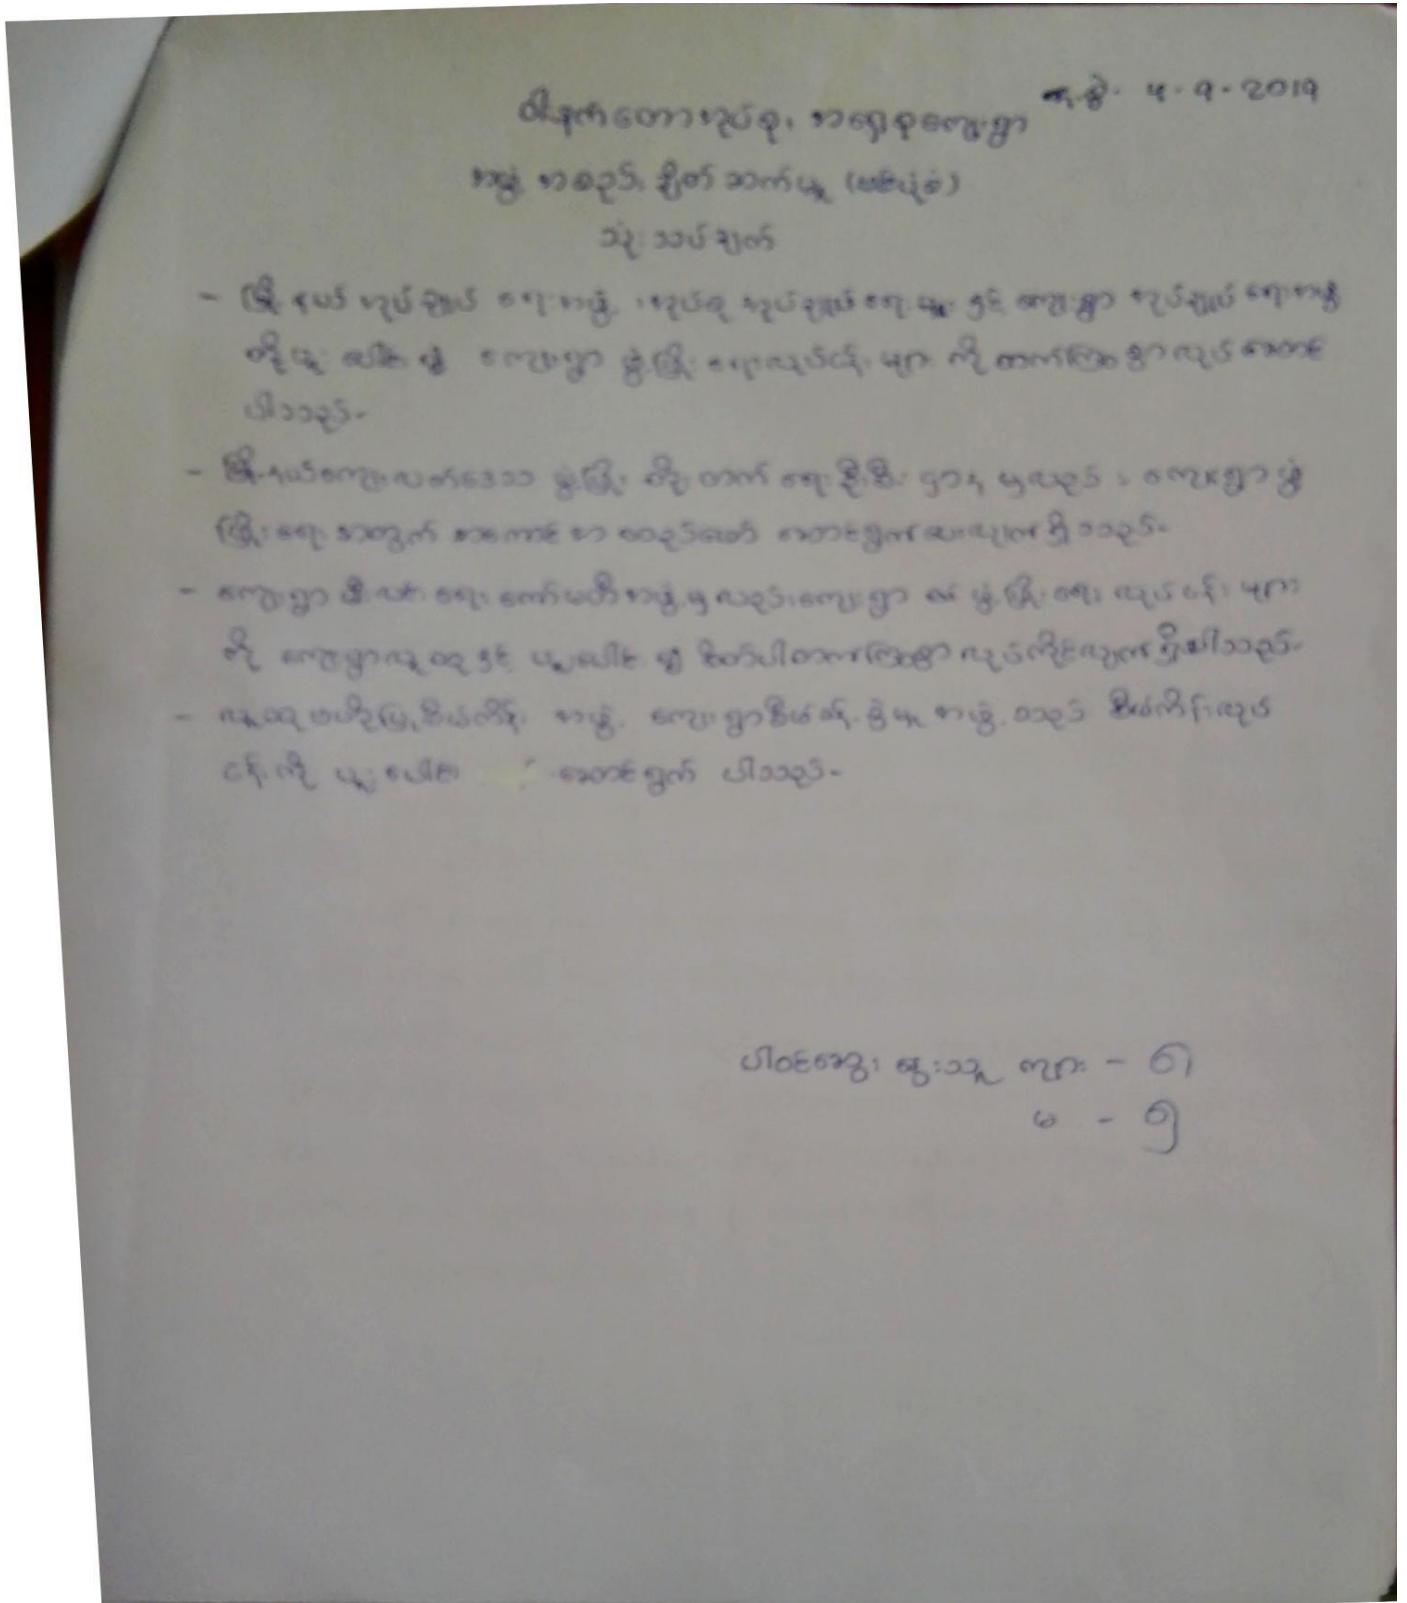 ရက်စွဲ- 4-9-2019
ဝါးနက်တောအုပ်စု၊ အရှေ့စုကျေးရွာ
အဖွဲ့အစည်း ချိတ်ဆက်မှု (ဗင်ပုံစံ)
သုံးသပ်ချက်
- မြို့နယ်အုပ်ချုပ်ရေးအဖွဲ့၊ အုပ်စုအုပ်ချုပ်ရေးမှူးနှင့် ကျေးရွာအုပ်ချုပ်ရေးအဖွဲ့
တို့ပူးပေါင်း၍ ကျေးရွာဖွံ့ဖြိုးရေးလုပ်ငန်းများကို တက်ကြွစွာလုပ်ဆောင်
ပါသည်။
- မြို့နယ်ကျေးလက်ဒေသ ဖွံ့ဖြိုးတိုးတက်ရေးဦးစီးဌာနမှလည်း ကျေးရွာဖွံ့
ဖြိုးရေးအတွက် အကောင်အထည်ဖော် ဆောင်ရွက်ပေးလျက်ရှိသည်။
- ကျေးရွာမီးလင်းရေးကော်မတီအဖွဲ့မှလည်း ကျေးရွာ ဖွံ့ဖြိုးရေးလုပ်ငန်းများ
ကို ကျေးရွာလူထုနှင့် ပူးပေါင်း၍ စိတ်ပါတက်ကြွစွာလုပ်ကိုင်လျက်ရှိပါသည်။
- လူထုဗဟိုပြုစီမံကိန်းအဖွဲ့ ကျေးရွာစီမံခန့်ခွဲမှုအဖွဲ့သည် စီမံကိန်းလုပ်
ငန်းကို ပူးပေါင်း ဆောင်ရွက်ပါသည်။
ပါဝင်ဆွေးနွေးသူ ကျား - ၈
မ - ၅